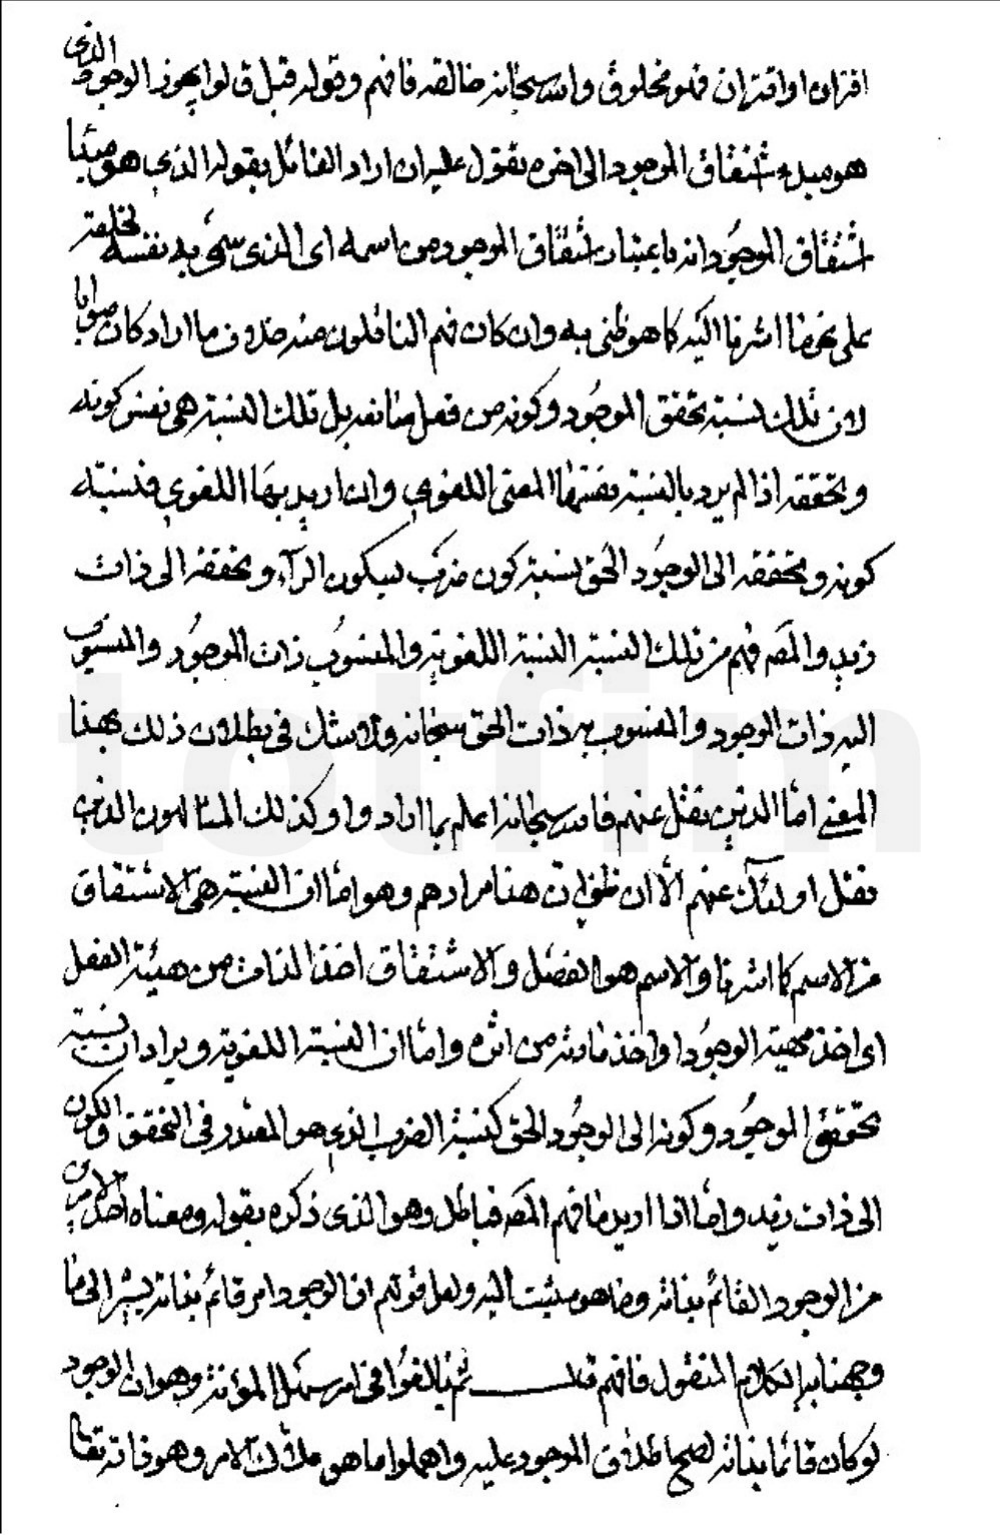 افتراق او اقتران فهو مخلوق والله سبحانه خالقه فافهم وقوله قبل قالوا يجوز الوجود الذى
هو مبدء اشتقاق الموجود الى اخره نقول عليه ان اراد القائل بقوله الذى هو مبدء
اشتقاق الموجود انه باعتبار اشتقاق الموجود من اسمه اى الذى سمى به نفسه لخلقه
على نحو ما اشرنا اليه كما هو ظنى به وان كان فهم الناقلون عنه خلاف ما اراد كان صوابا
لان تلك نسبة تحقق الموجود وكونه من فعل صانعه بل تلك النسبة هى نفس كونه
وتحققه اذا لم يرد بالنسبة نفسها المعنى اللغوى وان اريد بها اللغوى فنسبة
كونه وتحققه الى الوجود الحق نسبة كون ضرب بسكون الراء وتحققه الى ذات
زيد والمص فهم من تلك النسبة النسبة اللغوية والمنسوب ذات الموجود والمنسوب
اليه ذات الوجود والمنسوب به ذات الحق سبحانه ولا شك فى بطلان ذلك بهذا
المعنى اما الذين نقل عنهم فالله سبحانه اعلم بما ارادوا وكذلك المتالهون الذين
نقل اولئك عنهم الا ان ظنى ان هذا مرادهم وهو اما ان النسبة هى الاشتقاق
من الاسم كما اشرنا والاسم هو الفعل والاشتقاق اخذ الذات من هيئة الفعل
اى اخذ مهية الوجود او اخذ مادته من اثره واما ان النسبة اللغوية ويراد ان نسبة
تحقق الموجود وكونه الى الوجود الحق كنسبة الضرب الذى هو المصدر فى التحقق والكون
الى ذات زيد واما اذا اريد ما فهم المص فباطل وهو الذى ذكره بقوله ومعناه احد الامرين
من الوجود القائم بذاته وما هو منتسب اليه ولعل قولهم ان الوجود امر قائم بذاته يشير الى ما
وجهنا به الكلام المنقول فافهم قال ثم بالغوا فى امر سهل المؤنة وهو ان الوجود
لو كان قائما بذاته لصح اطلاق الموجود عليه واهملوا ما هو ملاك الامر وهو ذاته تعالى